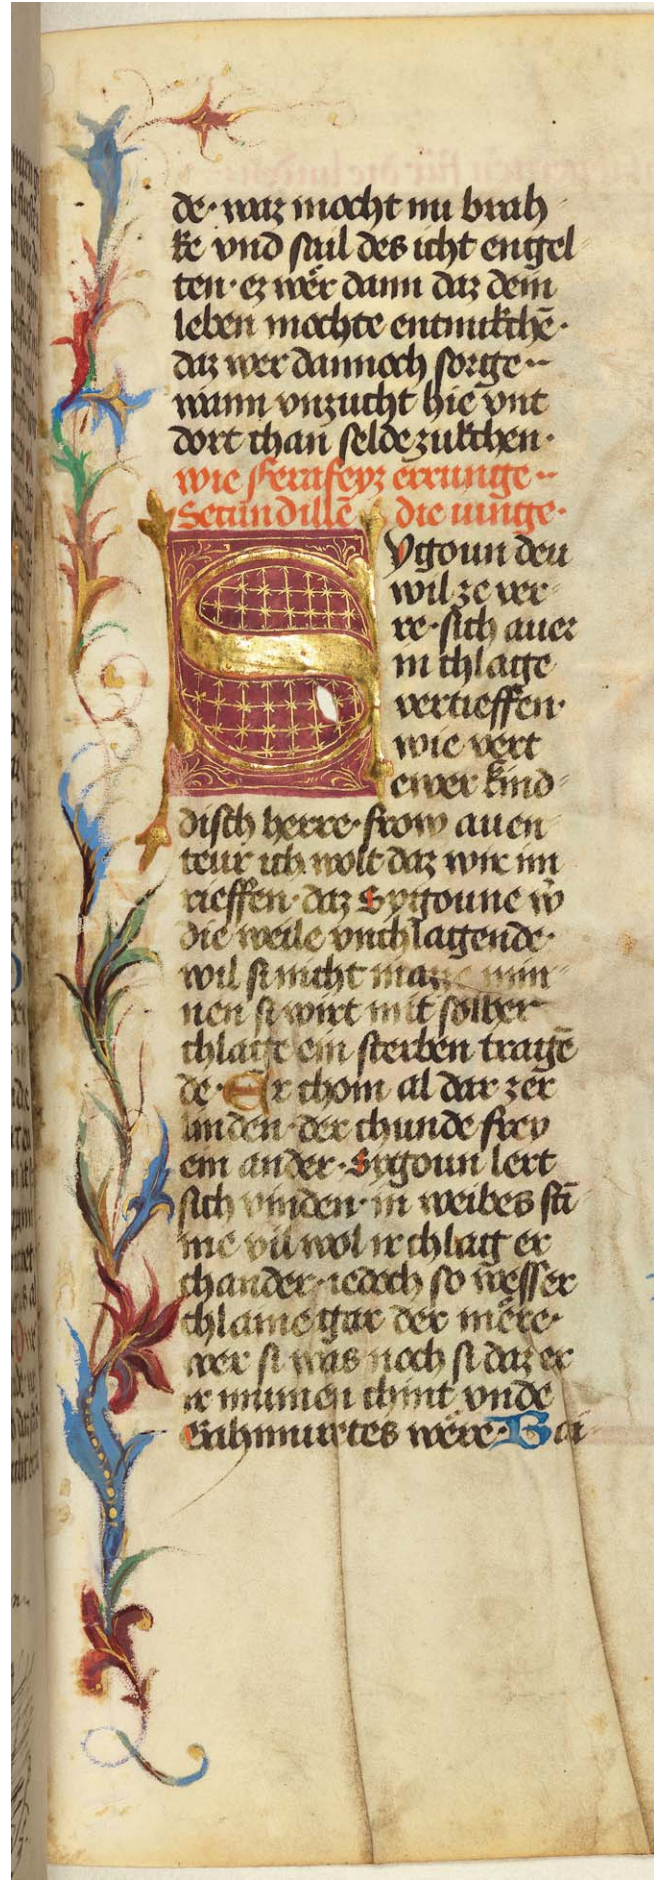 de· waz mocht nu brah
ke vnd sail des icht engel
ten· ez wër dann daz dem
leben mochte entnukchē·
daz wer dannoch sorge··
wann vnzucht hie vnt
dort chan selde zukchen·
wie ferafeyz errunge··
Secundillē die iunge·
SYgoun den
wil ze ver
re· sich auer
in chlage
vertieffen·
wie vert
ewer kind
disch herre· frow auen
teur ich wolt daz wir im
rieffen· daz Sygoune w
die weile vnchlagende·
wil si nicht man min
nen si wirt mit solher
chlage ein sterben tragē
de· Er chom al dar zer
linden· der chunde frey
ein ander· Sygoun lert
sich vinden· in weibes sti
me vil wol ir chlag er
chander· iedoch so wesser
chlaine gar der mëre·
wer si was noch si daz er
ir mumen chint vnde
Gahmurtes wëre· Bei